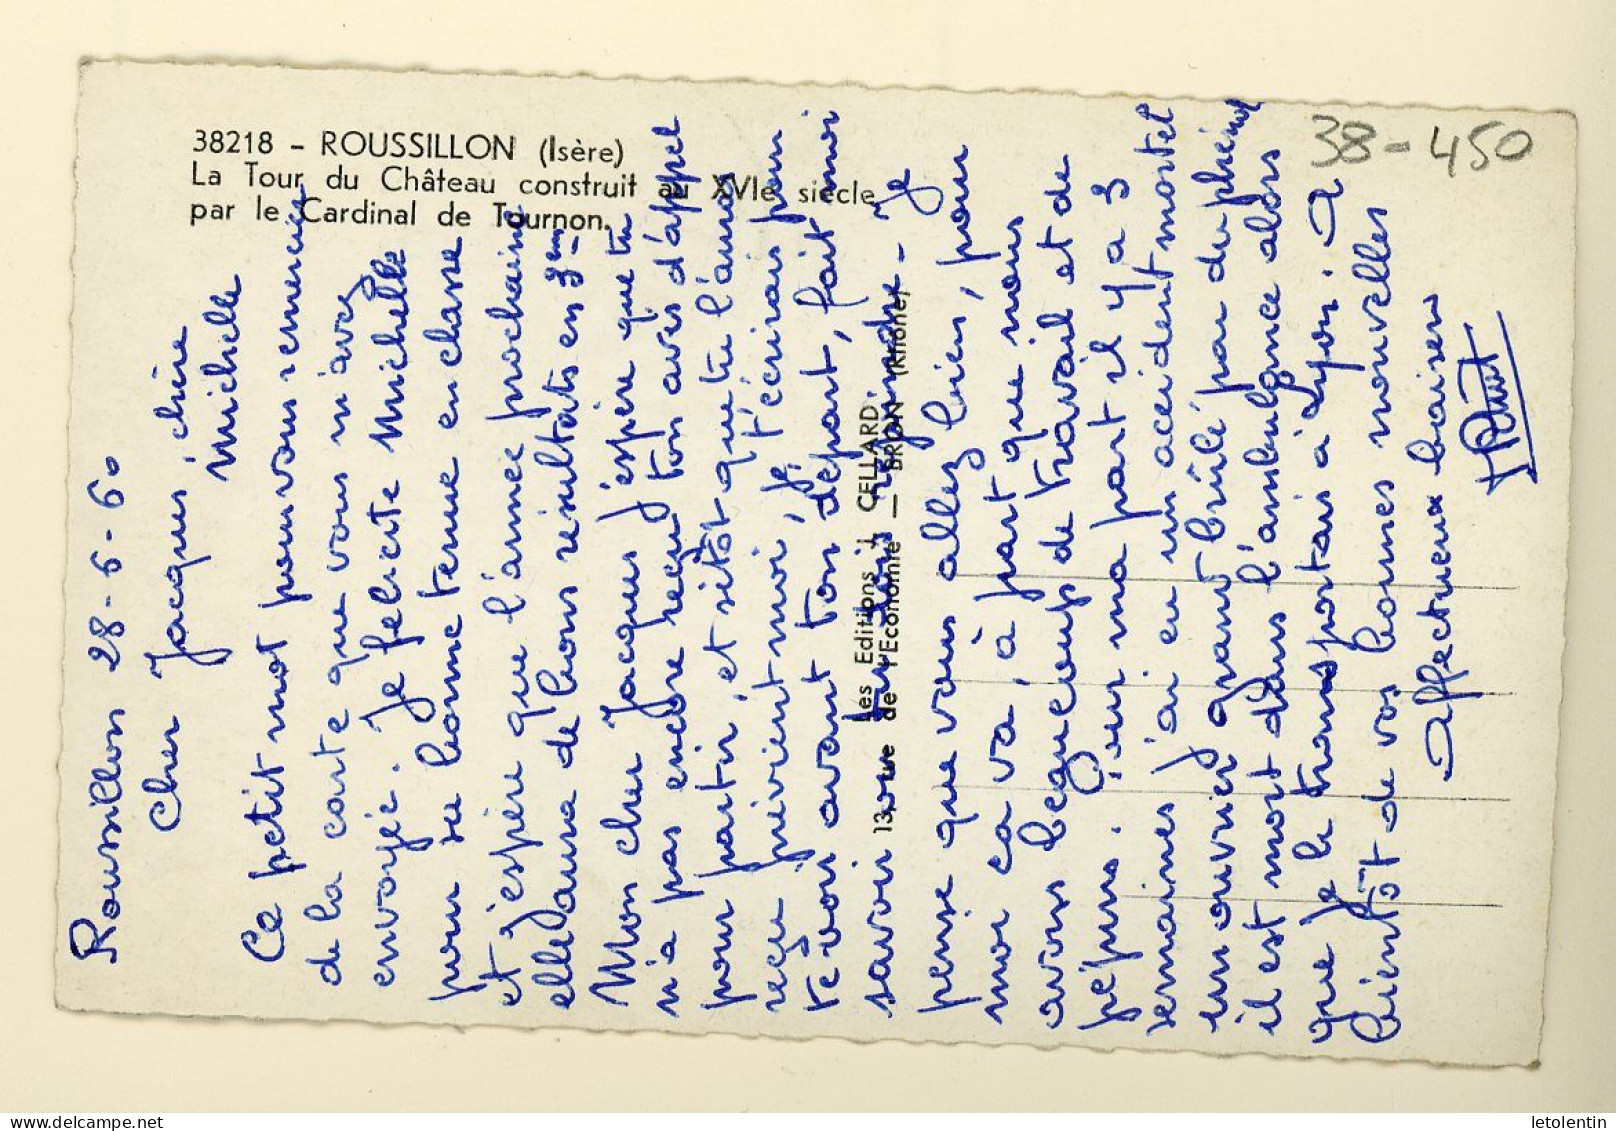 38218 – ROUSSILLON (Isère)
La Tour du Château construit au XVIe siècle
par le Cardinal de Tournon.
38-450
Roussillon 28-6-60
Cher Jacques, chère
Michelle
Ce petit mot pour vous remercier
de la carte que vous m'avez
envoyée. Je félicite Michelle
pour sa bonne tenue en classe
et j'espère que l'année prochaine
elle aura de bons résultats en 3ème
Mon cher Jacques j'espère que tu
n'a pas encore reçu ton avis d'appel
pour partir, et sitôt que tu l'auras
reçu prévient moi, je t'écrirais pour
te voir avant ton départ, fait moi
savoir Je
pense que vous allez bien, pour
moi ça va, à part que nous
avons begueoups de travail et de
pépins. Pour ma part il y a 3
semaines j'ai eu un accident mortel
un ouvrier grand brûlé par du phénol
il est mort dans l'ambulance alors
que je le transportais à Lyon. A
bientôt de vos bonnes nouvelles
Affectueux baisers
Les Editions J. CELLARD
13, rue de l'Economie – BRON (Rhône)
letolentin